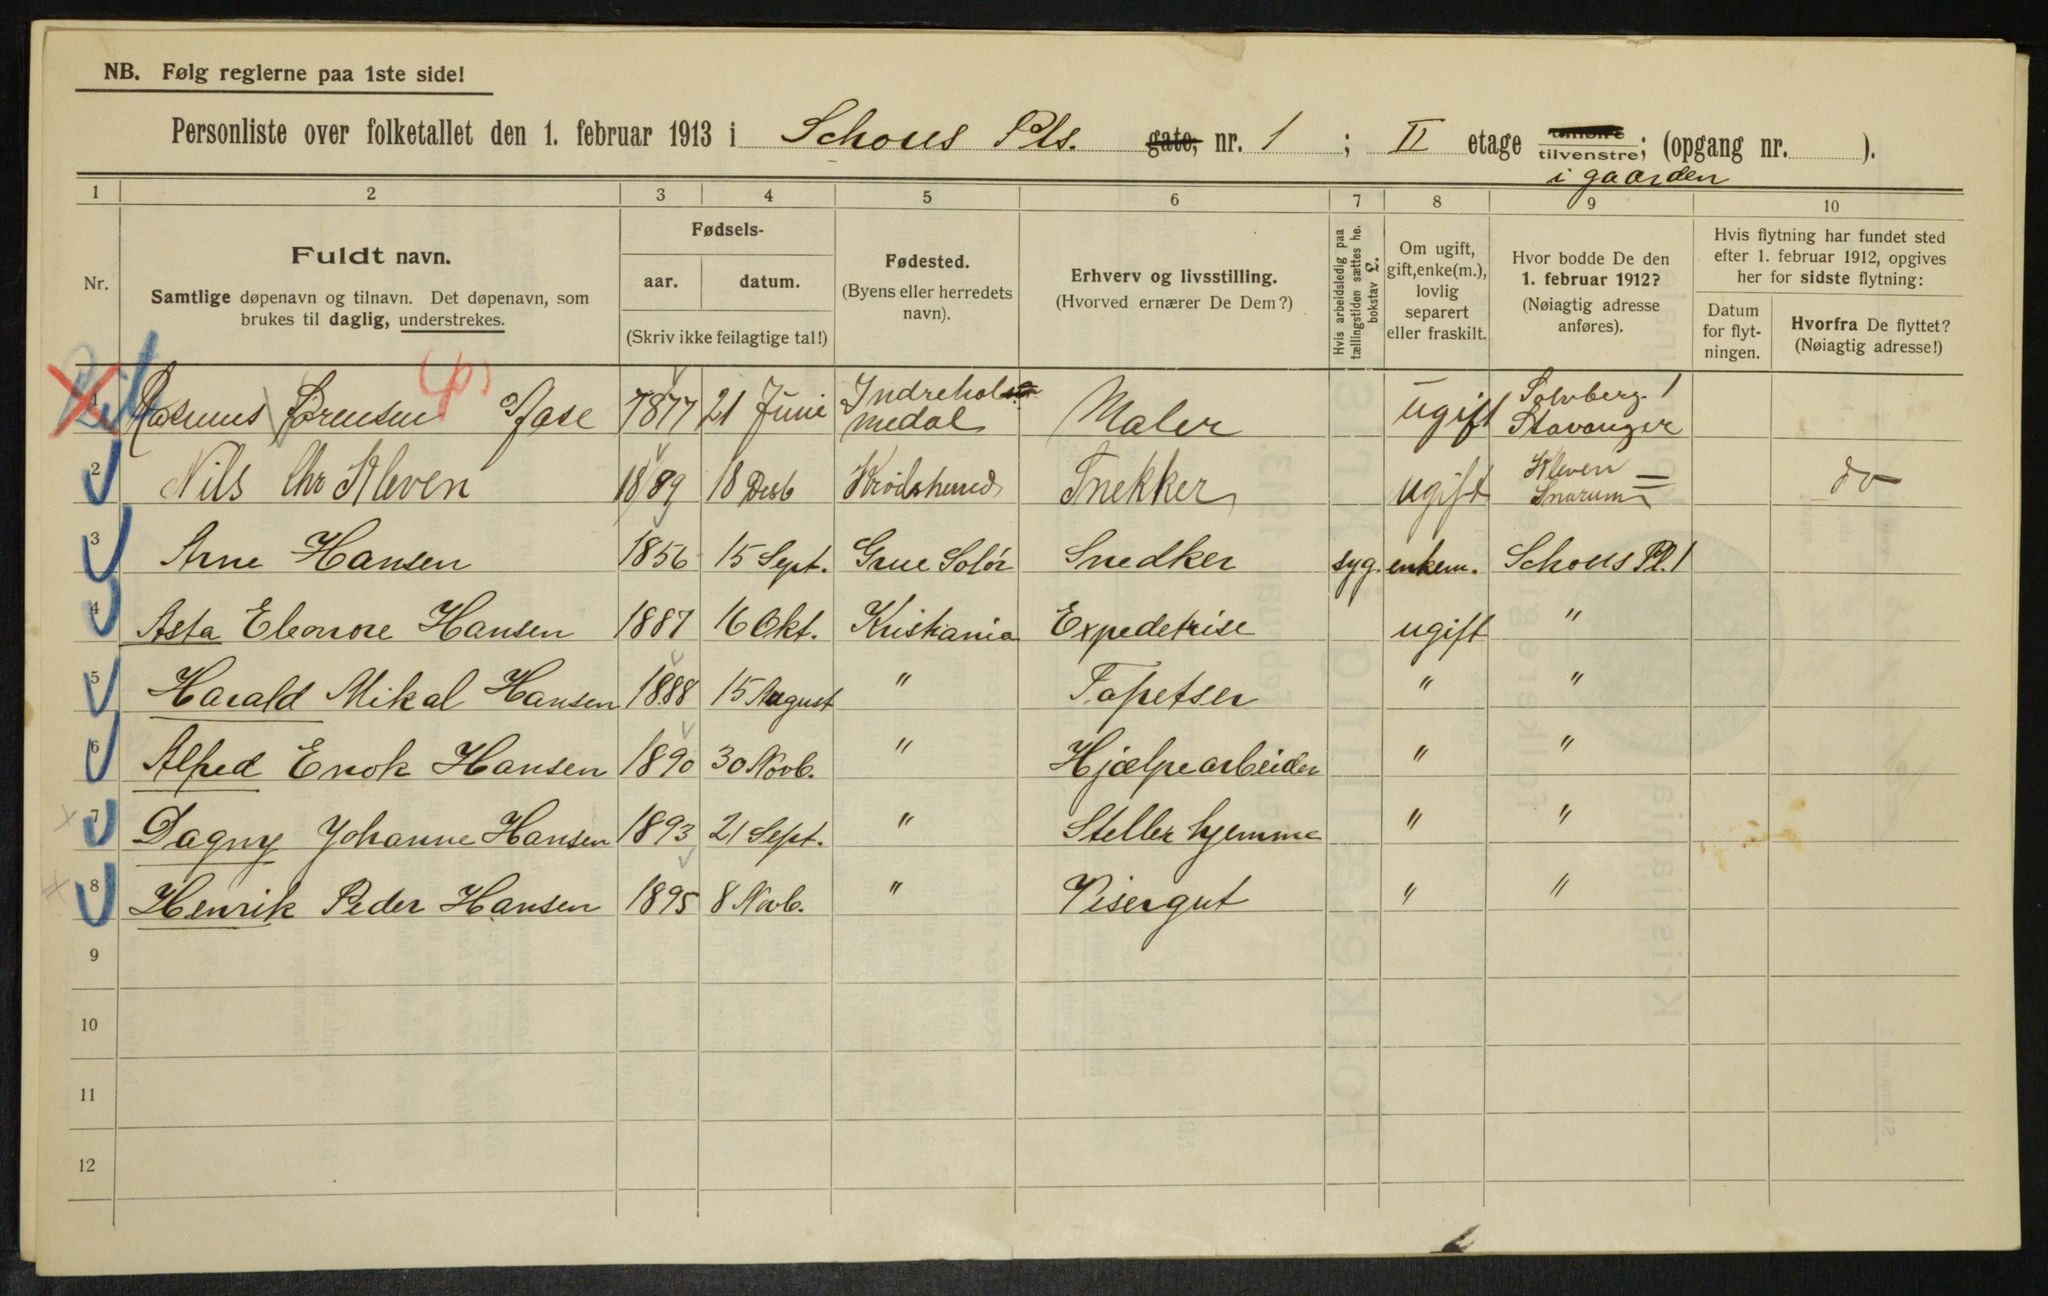 NB. Følg reglerne paa 1ste side!
Personliste over folketallet den 1. februar 1913 i Schous Pls. gate, nr. 1 ; II etage tilhøire tilvenstre; (opgang nr. ).
i gaarden
1 2 3 4 5 6 7 8 9 10
Nr.
Fuldt navn.
Samtlige døpenavn og tilnavn. Det døpenavn, som
brukes til daglig, understrekes.
Fødsels-
aar. datum.
(Skriv ikke feilagtige tal!)
Fødested.
(Byens eller herredets
navn).
Erhverv og livsstilling.
(Hvorved ernærer De Dem?)
Hvis arbeidsledig paa
tællingstiden sættes he.
bokstav £.
Om ugift,
gift, enke(m.),
lovlig
separert
eller fraskilt.
Hvor bodde De den
1. februar 1912?
(Nøiagtig adresse
anføres).
Hvis flytning har fundet sted
efter 1. februar 1912, opgives
her for sidste flytning:
Datum
for flyt-
ningen.
Hvorfra De flyttet?
(Nøiagtig adresse!)
1 Rasmus Sørensen 1877 21 Juni Indrehols- medal Maler ugift Solvberg. 1 Stavanger
2 Nils Chr Kleven 1889 18 Desb Krödsherred Snekker ugift Kleven Snarum do
3 Arne Hansen 1856 15 Sept. Grue Solör Snedker syg. enkem. Schous Pl. 1
4 Asta Eleonore Hansen 1887 16 Okt. Kristiania Expedetrise ugift "
5 Harald Mikal Hansen 1888 15 August " Tapetser " "
6 Alfred Enok Hansen 1890 30 Novb. " Hjælpearbeider " "
7 Dagny Johanne Hansen 1893 21 Sept. " Steller hjemme " "
8 Henrik Peder Hansen 1895 8 Novb. " Visergut " "
9
10
11
12